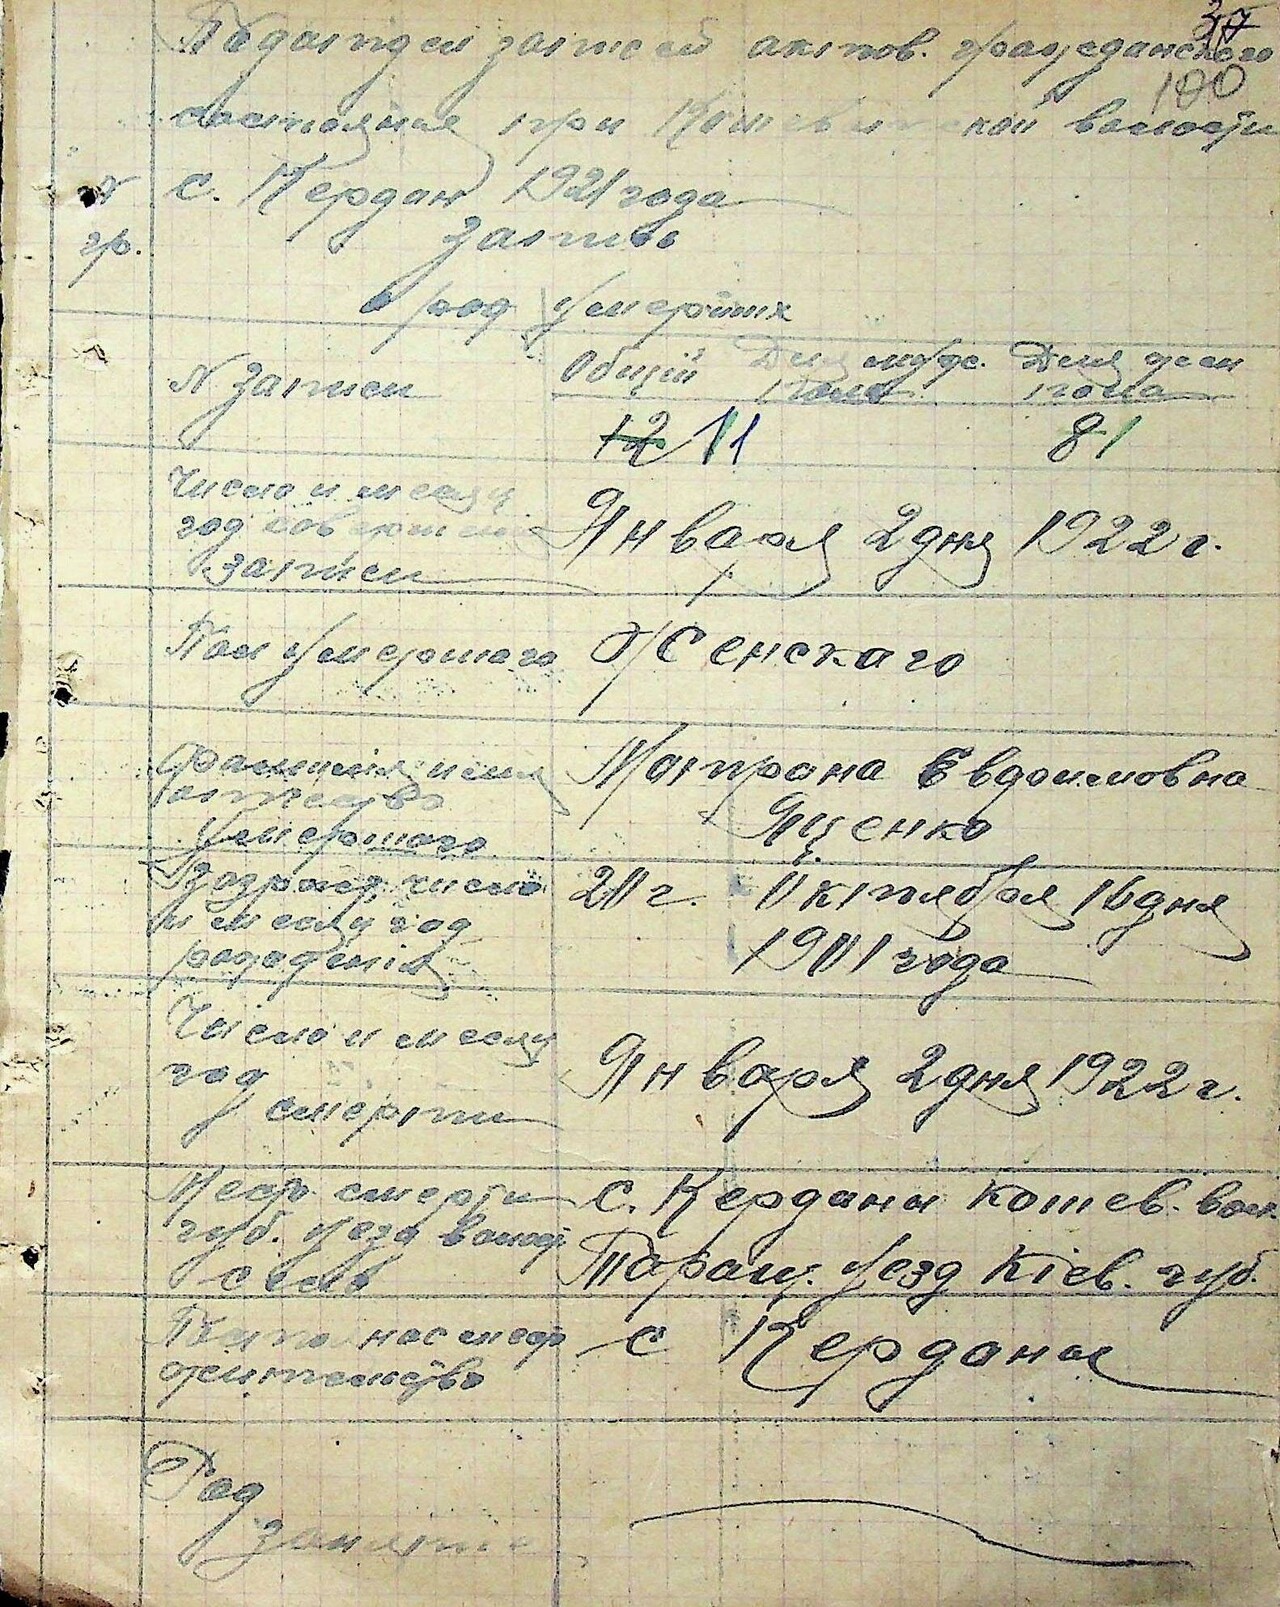 37
Подотдел записей актов. гражданского
100
состояния при Кошеватской волости
с. Кердан 1921 года
гр.
Запись
о род умерших
N Записи
Общий Для муж. пола Для жен пола
12 11 81
Число и месяц
год совершен
записи
Января 2 дня 1922 г.
Пол умершого Женскаго
Фамилия имя
отчество
умершого
Матрона Евдокимовна
Ященко
Возраст, число
и месяц год
рождения
20 г. Октября 16 дня
1901 года
Число и месяц
год
смерти
Января 2 дня 1922 г.
Место смерти
губ. уезд волост
село
с. Керданы Кошев. вол.
Таращ. уезд Кіев. губ.
мест
жительство
с Керданы
Род
занятие